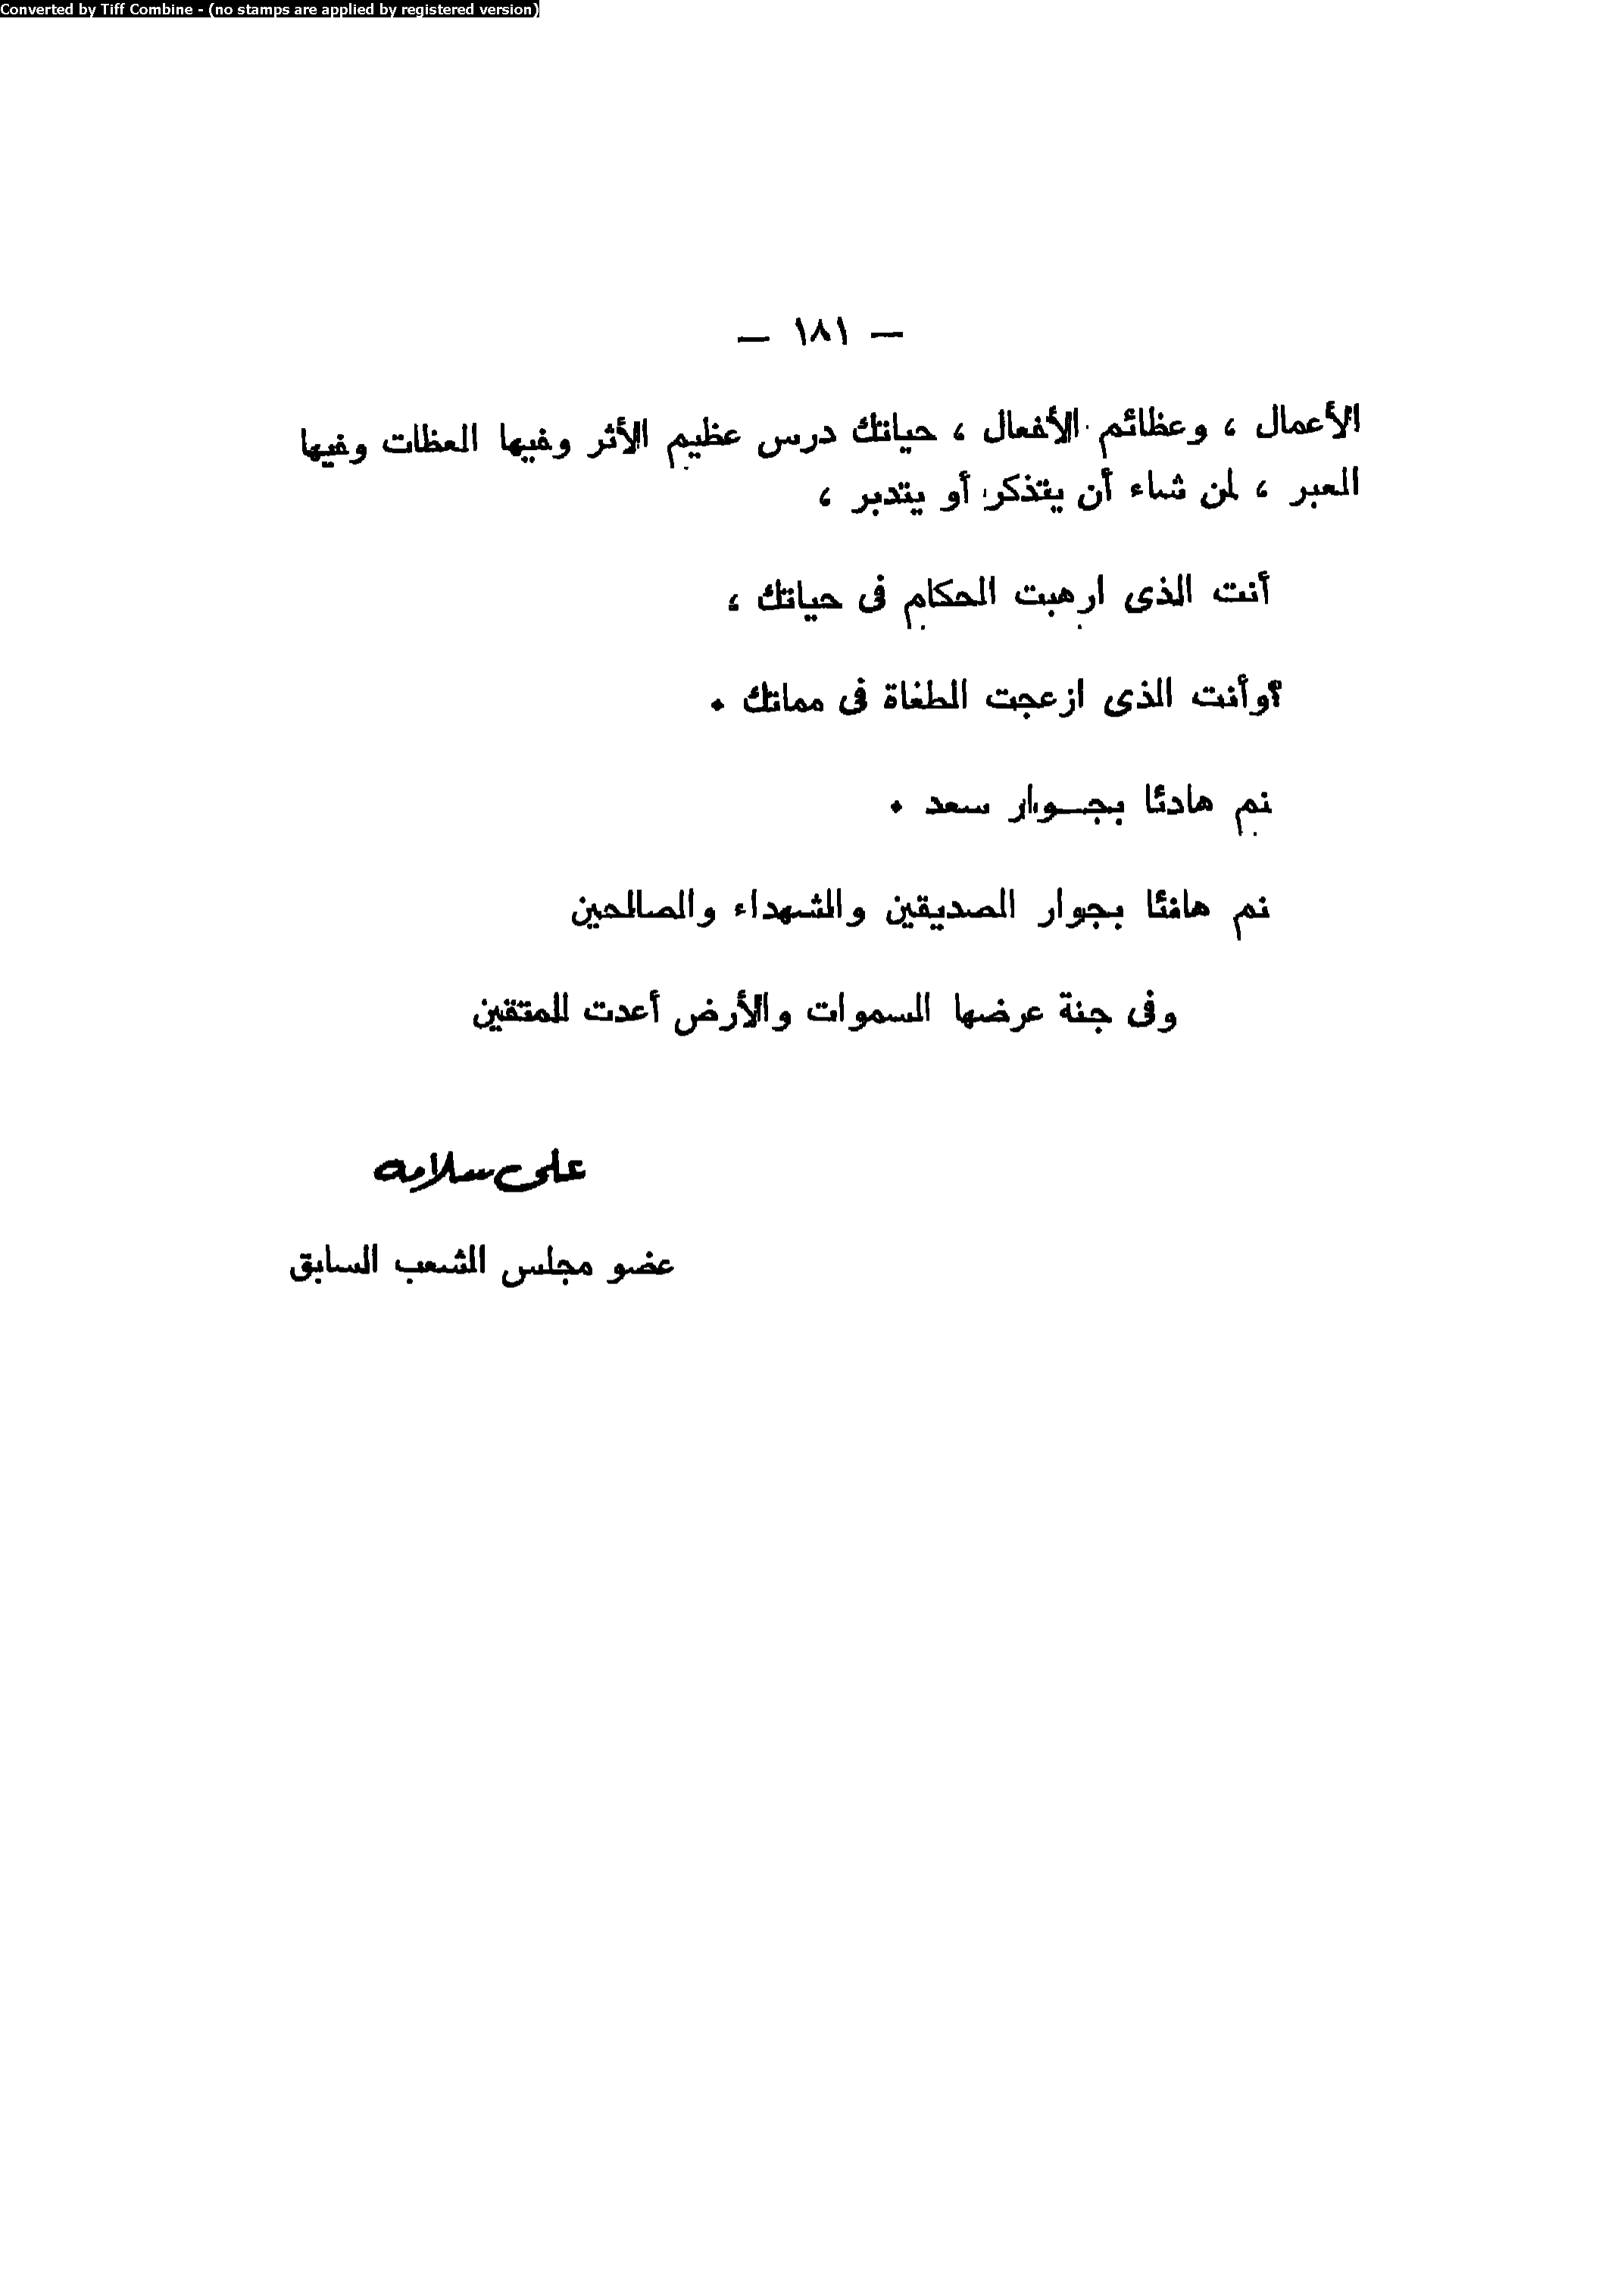 Converted by Tiff Combine - (no stamps are applied by registered version)
— ١٨١ —
الأعمال ، وعظائم الأفعال ، حياتك درس عظيم الأثر وفيها العظات وفيها
العبر ، لمن شاء أن يتذكر أو يتدبر ،
أنت الذى ارهبت الحكام فى حياتك ،
؟وأنت الذى ازعجت الطغاة فى مماتك .
نم هادئا بجـوار سعد .
نم هانئا بجوار الصديقين والشهداء والصالحين
وفى جنة عرضها السموات والأرض أعدت للمتقين
على سلامه
عضو مجلس الشعب السابق